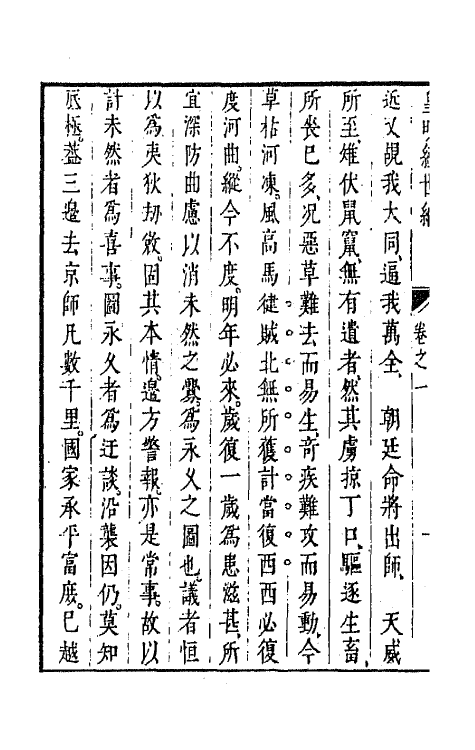 皇明經世編 卷之一 一
近又覘我大同、逼我萬全、 朝廷命將出師、 天威
所至、雉伏鼠竄、無有遺者、然其虜掠丁口、驅逐生畜、
所喪已多、況惡草難去而易生、奇疾難攻而易動、今
草枯河凍。風高馬健。賊北無所獲。計當復西。西必復
度河曲。縱今不度。明年必來。歲復一歲。為患滋甚。所
宜深防曲慮。以消未然之釁。為永久之圖也。議者恒
以為夷狄刼斂。固其本情。邊方警報。亦是常事。故以
計未然者為喜事。圖永久者為迂談。沿襲因仍。莫知
底極。葢三邊去京師凡數千里。國家承平富庶。已越